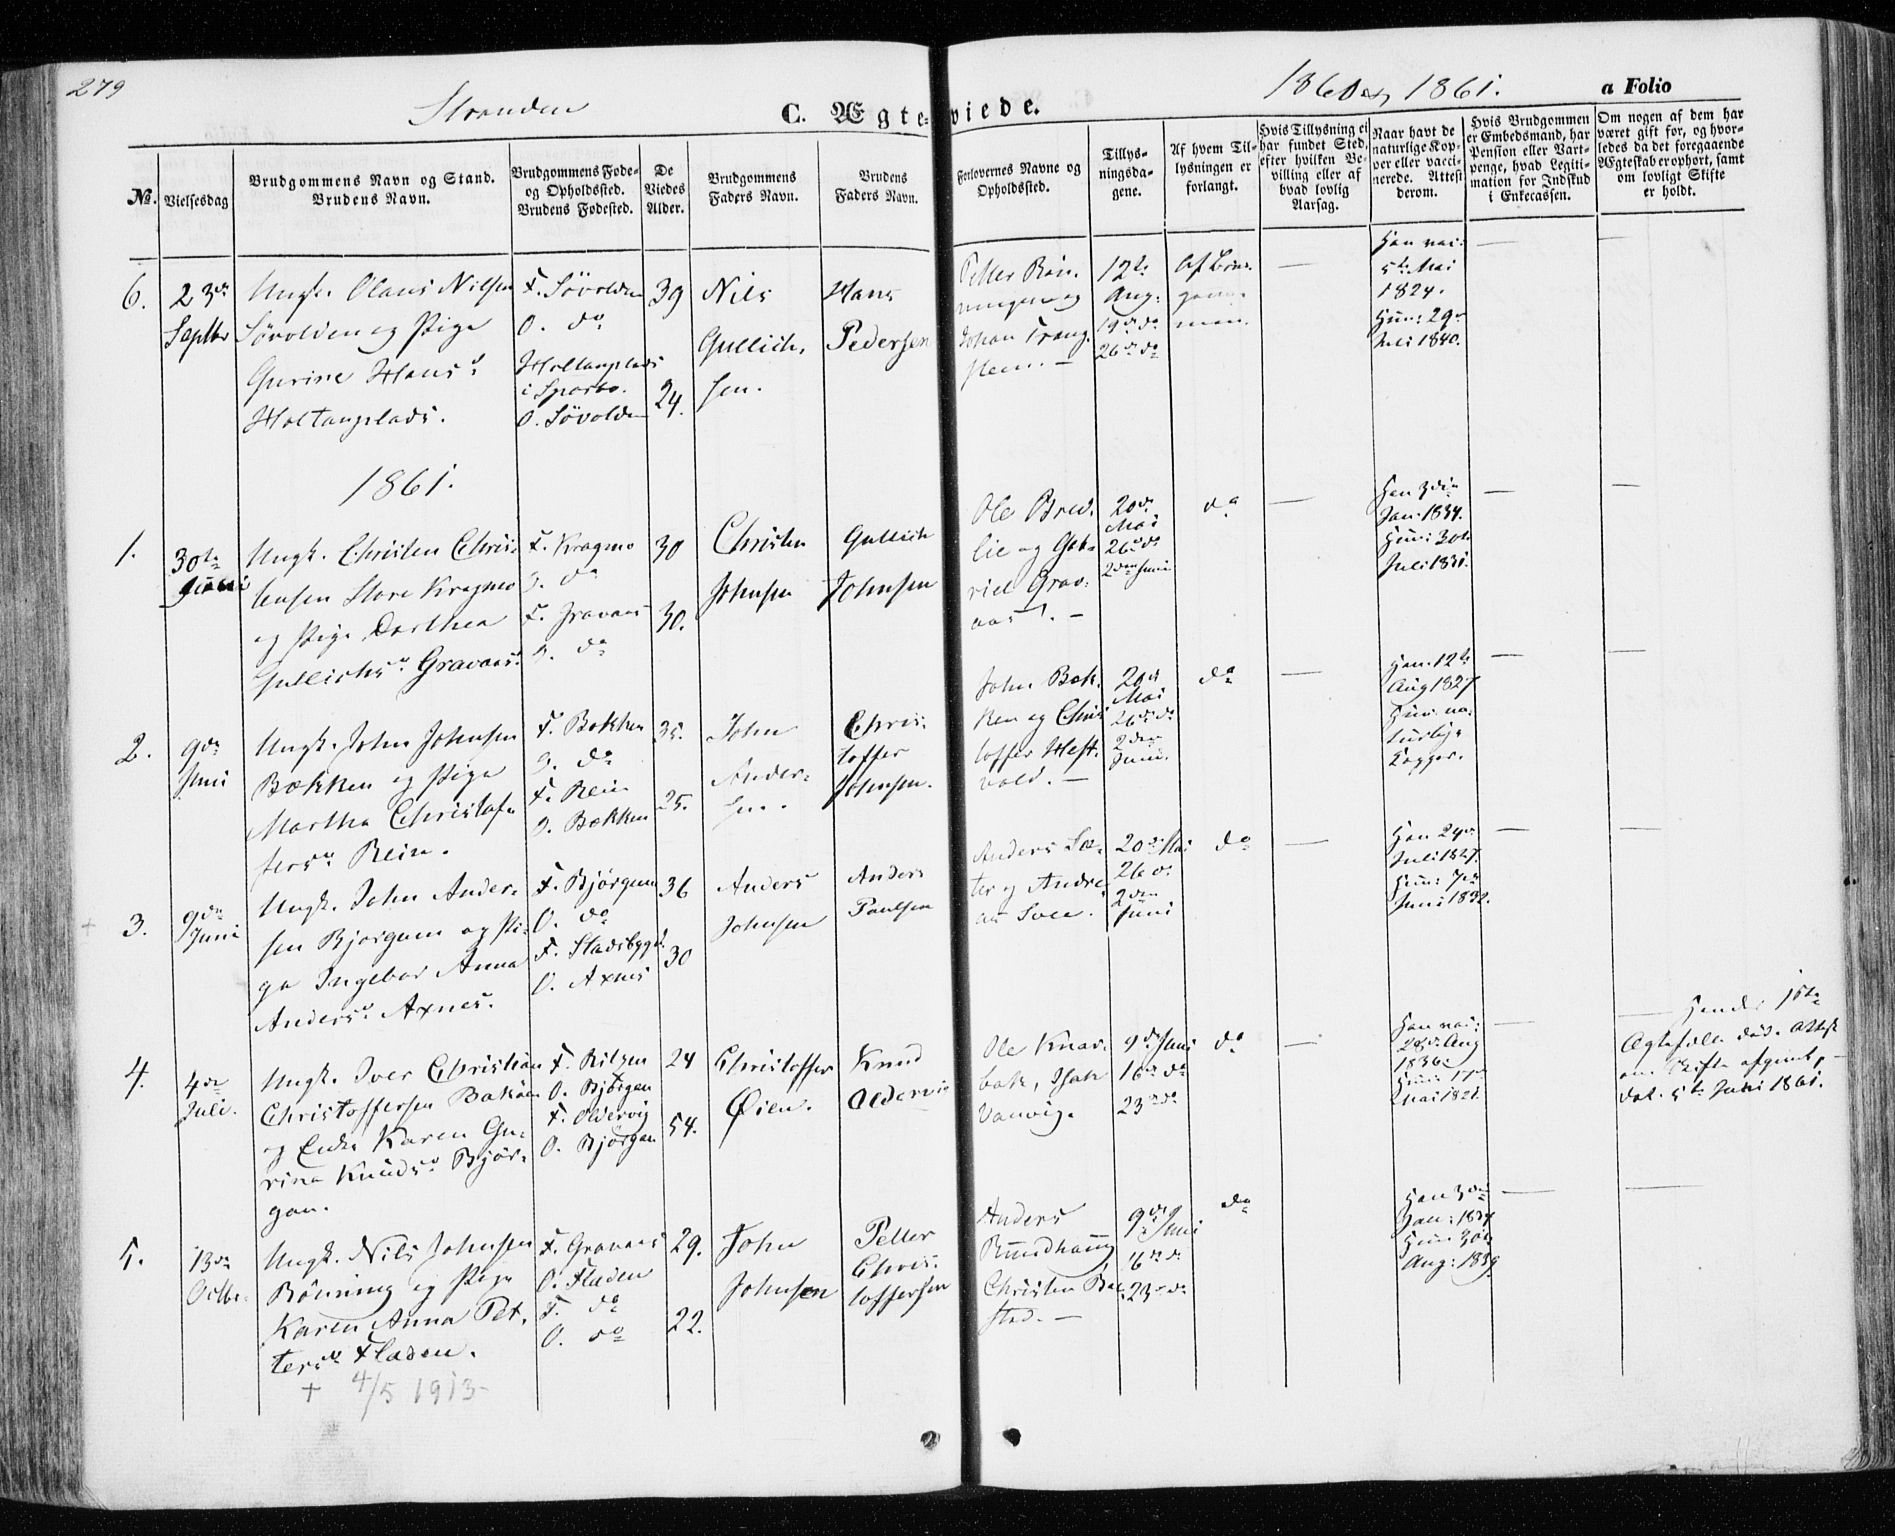 279
Stranden
C. Ægteviede.
1860 og 1861.
a Folio
No.
Vielsesdag
Brudgommens Navn og Stand.
Brudens Navn.
Brudgommens Føde-
og Opholdssted.
Brudens Fødested.
De
Viedes
Alder.
Brudgommens
Faders Navn.
Brudens
Faders Navn.
Forlovernes Navne og
Opholdssted.
Tillys-
ningsda-
gene.
Af hvem Til-
lysningen er
forlangt.
Hvis Tillysning ei
har fundet Sted,
efter hvilken Be-
villing eller af
hvad lovlig
Aarsag.
Naar havt de
naturlige Kop-
per eller vacci-
nerede. Attest
derom.
Hvis Brudgommen
er Embedsmand, har
Pension eller Vart-
penge, hvad Legiti-
mation for Indskud
i Enkecassen.
Om nogen af dem har
været gift før, og hvor-
ledes da det foregaaende
Ægteskab er ophørt, samt
om lovligt Skifte
er holdt.
6.
23de
Septbr
Ungk. Olaus Nilsen
Sövolden og Pige
Gurine Hansd
Holtanplads.
F. Sövolden
O. do
Holtanplads
i Sparbo.
O. Sövolden
39
24.
Nils
Gullich-
sen.
Hans
Pedersen
Petter Rön-
ningen og
Johan Trang-
sten. —
12te
Aug:
19de do
26de do
Af Brud-
gom-
men.
—
Han vac:
5te Mai
1824.
Hun: 29de
Juli 1840.
—
—
1861.
1.
30te
Juni
Ungk. Christen Chris-
tensen Store Kragmo
og Pige Dorthea
Gullichsd Gravaas.
F. Kragmo
O. do
F. Gravaas
O. do
30
30.
Christen
Johnsen
Gullich
Johnsen
Ole Bred-
lie og Gab-
riel Grav-
aas. —
20de
Mai
26de do
2den Juni
do
—
Han 3die
Jan: 1834.
Hun: 30te
Juli 1831.
—
—
2.
9de
Juni
Ungk. John Johnsen
Bækken og Pige
Martha Christof-
fersd Rein.
F. Bækken
O. do
F. Rein
O. Bækken
35.
25.
John
Ander-
sen.
Chris-
toffer
Johnsen.
John Bæk-
ken og Chris-
toffer Hest-
vold. —
20de
Mai
26de do
2den
Juni.
do
—
Han 12te
Aug 1827
Hun: na-
turlige
Kopper.
—
—
3.
9de
Juni
Ungk. John Ander-
sen Bjørgum og Pi-
ge Ingebor Anna
Andersd Axnes.
F. Björgum
O. do
F. Stadsbygd.
O. Axnes
36
30
Anders
Johnsen
Anders
Paulsen
Anders Sæ-
ter og Andre-
as Svee.
20de Mai
26 do
2den
Juni
do
—
Han 24de
Juli 1827.
Hun: 7de
Juni 1832.
—
—
4.
4de
Juli.
Ungk. Iver Christian
Christoffersen Bakøen
og Enke Karen Gu-
rina Knudsd Bjør-
gan.
F. Ritzen
O. Björgan
F. Oldervig
O. Björgan
24
54.
Christoffer
Øien.
Knud
Oldervig
Ole Knav-
bak, Isak
Vanvig.
9de Juni
16de do
23de do
do
—
Han vac:
28de Aug
1836.
Hun: 17de
Mai 1821.
—
— Hendes 1ste
Ægtefælle död. Attest
om Skifte afgivet,
dat. 5te Juni 1861.
5.
13de
Octbr.
Ungk. Nils Johnsen
Rönning og Pige
Karen Anna Pet-
tersd Fladen.
F. Gravaas
O. Fladen
F. do
O. do
29.
22.
John
Johnsen
Petter
Chris-
toffersen
Anders
Rundhaug
Christen Bæ-
stad. —
9de Juni
16de do
23de do
do
Han 3die
Jan: 1834
Hun 30te
Aug: 1839
—
—
+ 4/5 1913